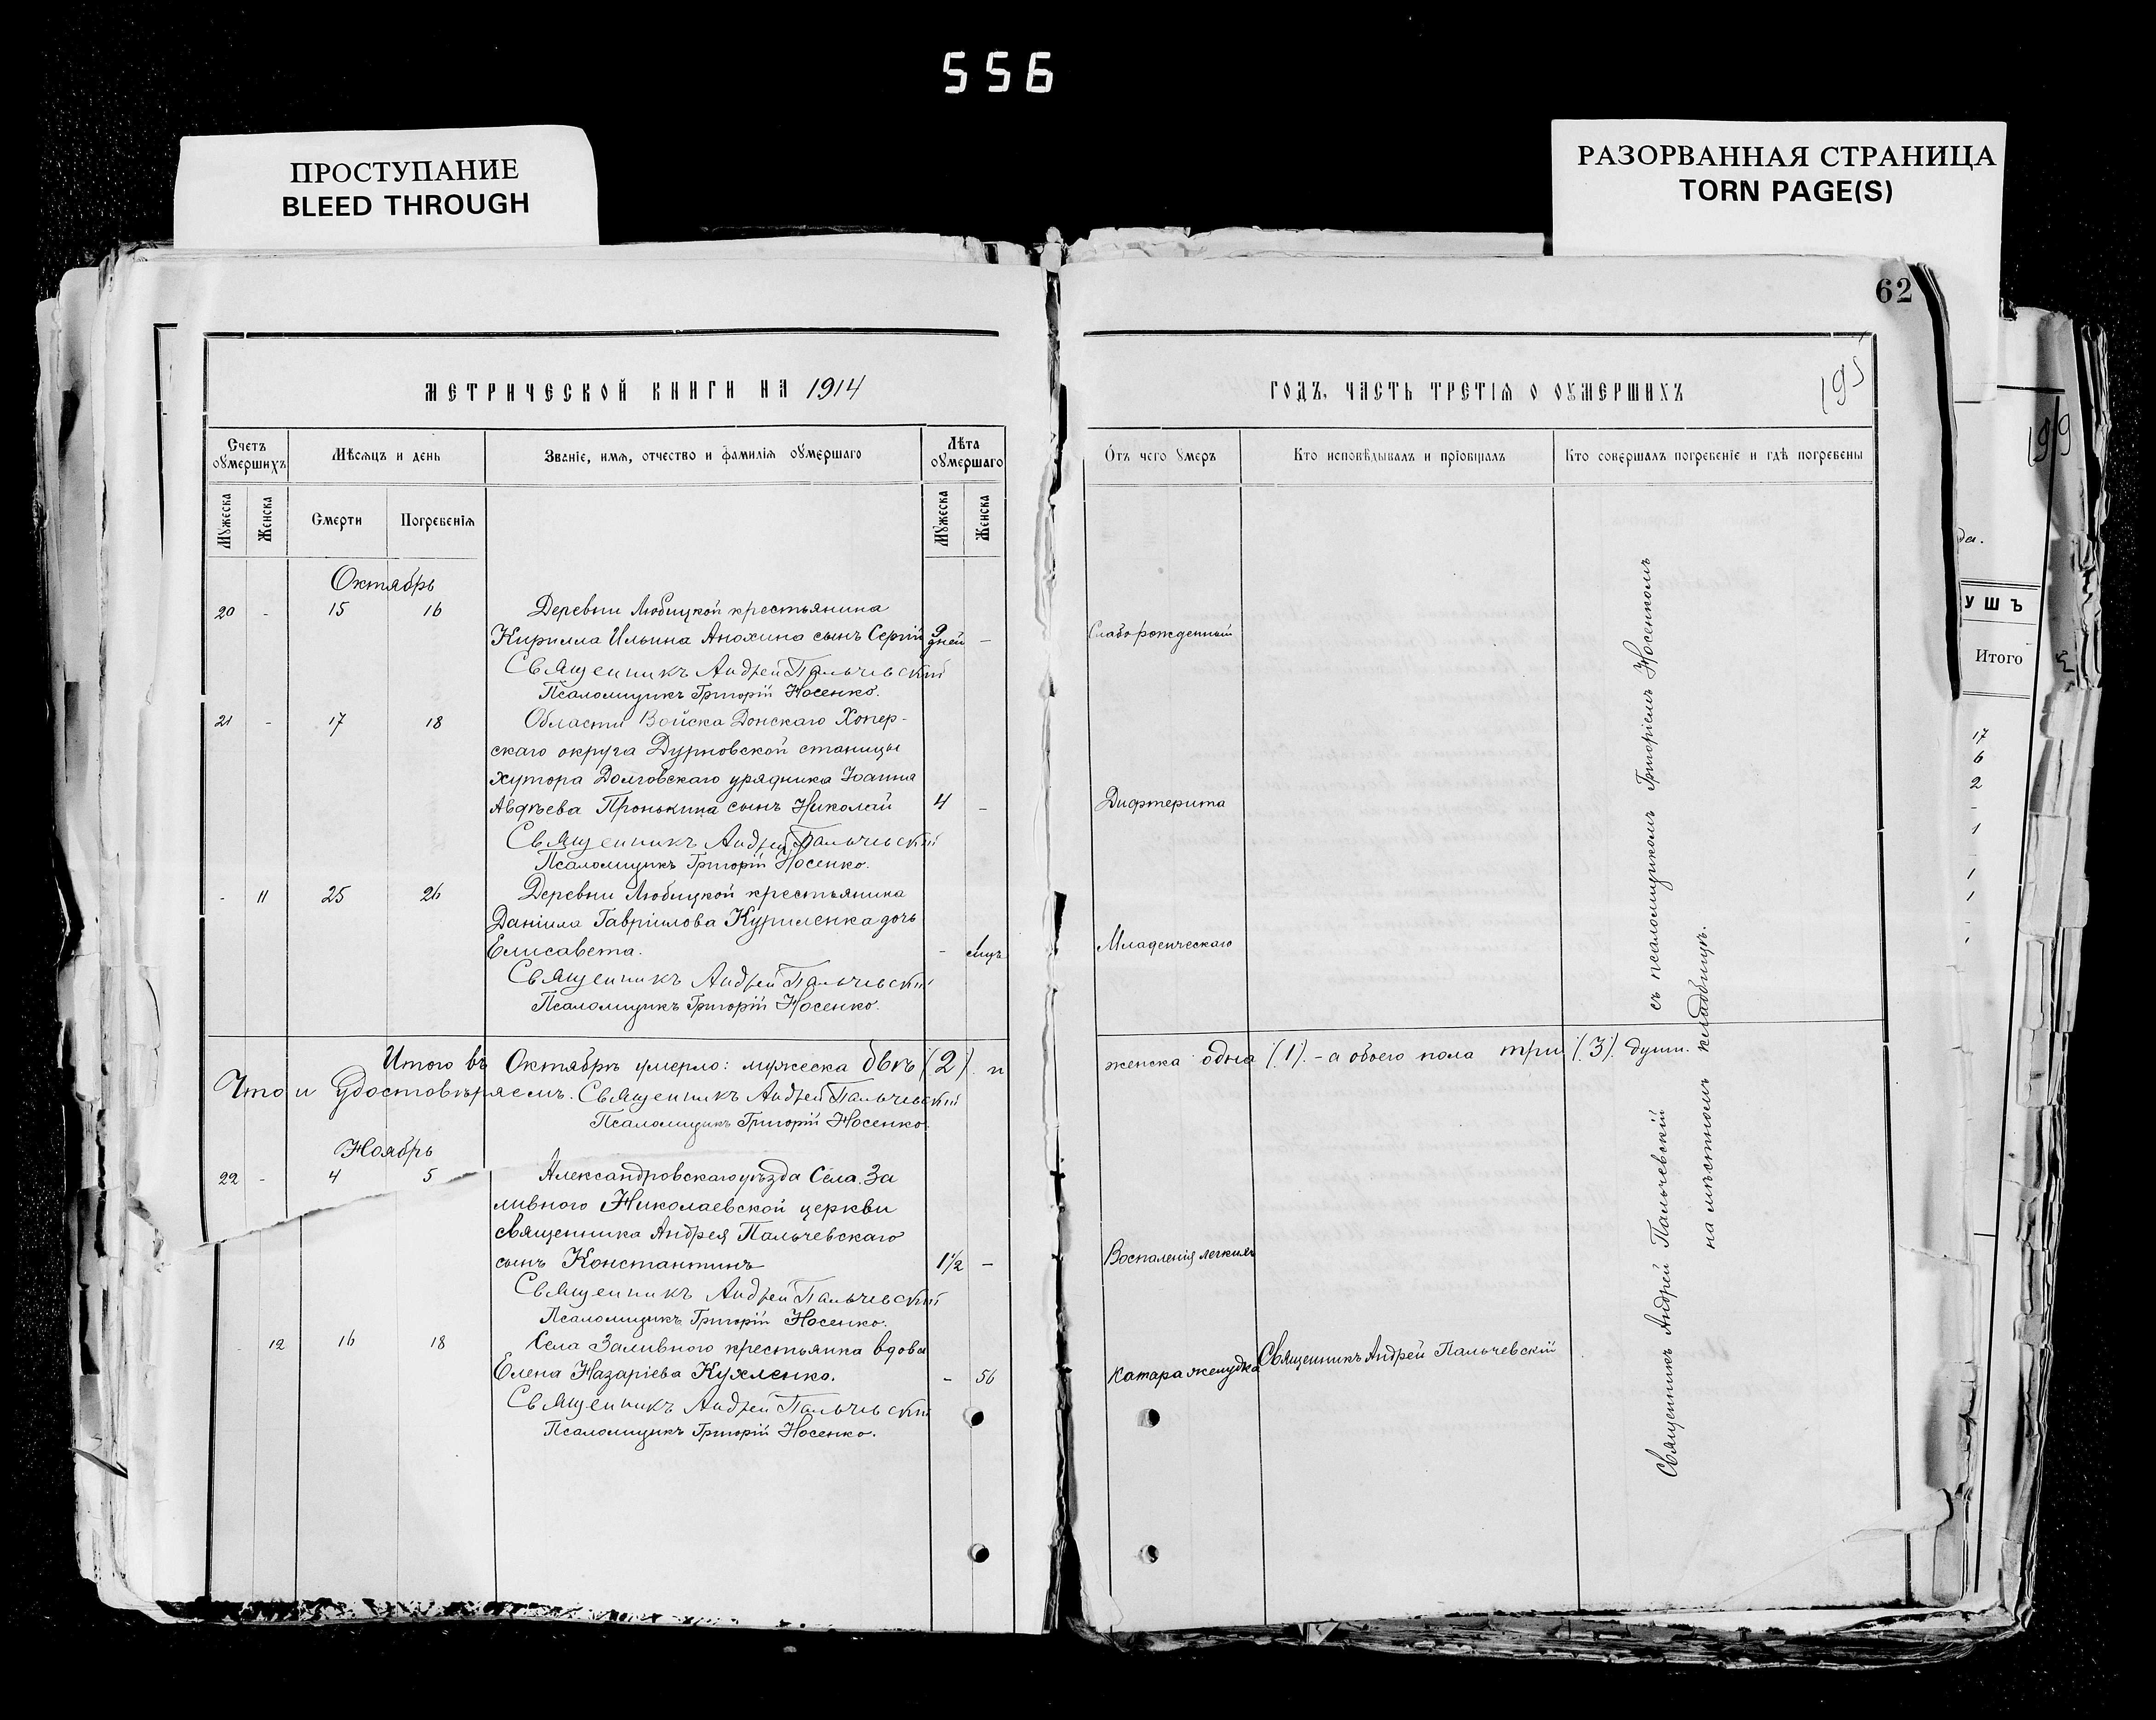 556
ПРОСТУПАНИЕ
BLEED THROUGH
РАЗОРВАННАЯ СТРАНИЦА
TORN PAGE(S)
62
195
199
МЕТРИЧЕСКОЙ КНИГИ НА 1914
Счетъ оумершихъ
Мѣсяцъ и день
Званіе, имя, отчество и фамилія оумершаго
Лѣта оумершаго
Мужеска
Женска
Смерти
Погребенія
Мужеска
Женска
Октябрь
20 - 15 16 Деревни Любицкой крестьянина
Кирилла Ильина Анохина сынъ Сергій 9 дней -
Священникъ Андрей Пальчевскій
Псаломщикъ Григорій Носенко.
21 - 17 18 Области Войска Донскаго Хопер-
скаго округа Дурновской станицы
хутора Долговскаго урядника Іоанна
Авдѣева Пронькина сынъ Николай 4 -
Священникъ Андрей Пальчевскій
Псаломщикъ Григорій Носенко.
- 11 25 26 Деревни Любицкой крестьянина
Даніила Гавріилова Куриленка дочь
Елисавета. -
Священникъ Андрей Пальчевскій
Псаломщикъ Григорій Носенко.
Итого въ Октябрѣ умерло: мужеска двѣ (2). и
Что и удостовѣряемъ. Священникъ Андрей Пальчевскій
Псаломщикъ Григорій Носенко.
Ноябрь
22 - 4 5 Александровскаго уѣзда Села За
ливного Николаевской церкви
священника Андрея Пальчевскаго
сынъ Константинъ 1½ -
Священникъ Андрей Пальчевскій
Псаломщикъ Григорій Носенко.
- 12 16 18 Села Заливного крестьянка вдова
Елена Назаріева Кухленко. - 56
Священникъ Андрей Пальчевскій
Псаломщикъ Григорій Носенко.
ГОДЪ, ЧАСТЬ ТРЕТІЯ О ОУМЕРШИХЪ
Отъ чего умеръ
Кто исповѣдывалъ и пріобщалъ
Кто совершалъ погребеніе и гдѣ погребены
Слаборожденный
Дифтерита
Младенческаго
женска одна (1). - а обоего пола три (3). души.
Воспаленія легкихъ
Катара желудка
Священникъ Андрей Пальчевскій
Священникъ Андрей Пальчевскій
съ псаломщикомъ Григоріемъ Носенкомъ
на мѣстномъ кладбищѣ.
да.
УШЪ
Итого
17
6
2
-
1
-
1
1
-
1